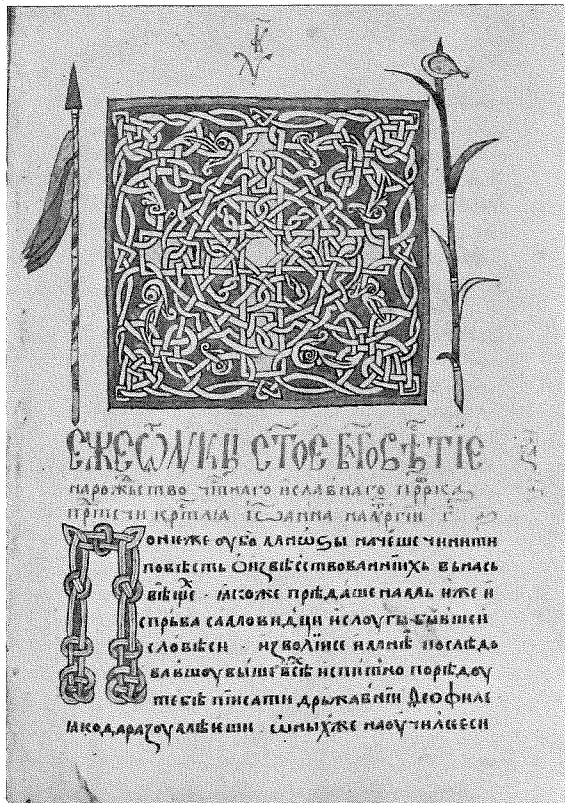 ЕЖЕ Ѿ ЛКИ СТ҃ОЕ БЛ҃ГОВѢСТІЕ
на рожⷣьство чⷭ҇тнаго и славнаго пррⷪ҇ка
прⷣтечи крⷭ҇тлꙗ Іѡанна на лѵ҃ргіи
Понюже оубо мнѡѕы начеше чинити
повѣсть ѡ извѣствованнїихь вь нась
вѣщⷯе · ꙗкоже прѣдаше намь иже и
спрьва самовидци и слоугы бывшеи
словѣси · изволисе и мнѣ послѣдо
вавшоу выше вⷭ҇ѣ испитно порѣдоу
тебѣ писати дрьжавнїи Ѳеофиле
ꙗко да разоумѣеши ѡ ныхже наоучилсе еси